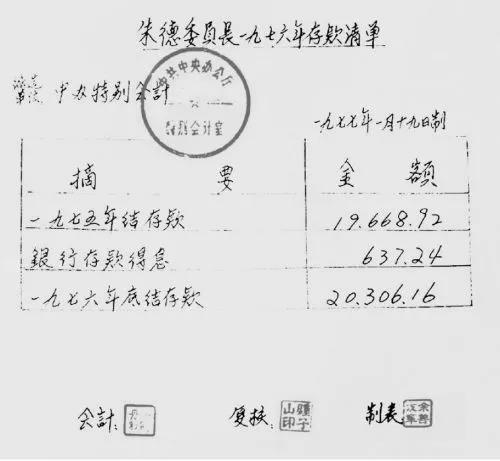 朱德委員長一九七六年存款清单
中办特别会計
中共中央办公厅
特别会计室
一九七七年一月十九日制
摘 要 金 額
一九七五年结存款 19.668.92
銀行存款得息 637.24
一九七六年底结存款 20.306.16
会計: 复核: 制表: